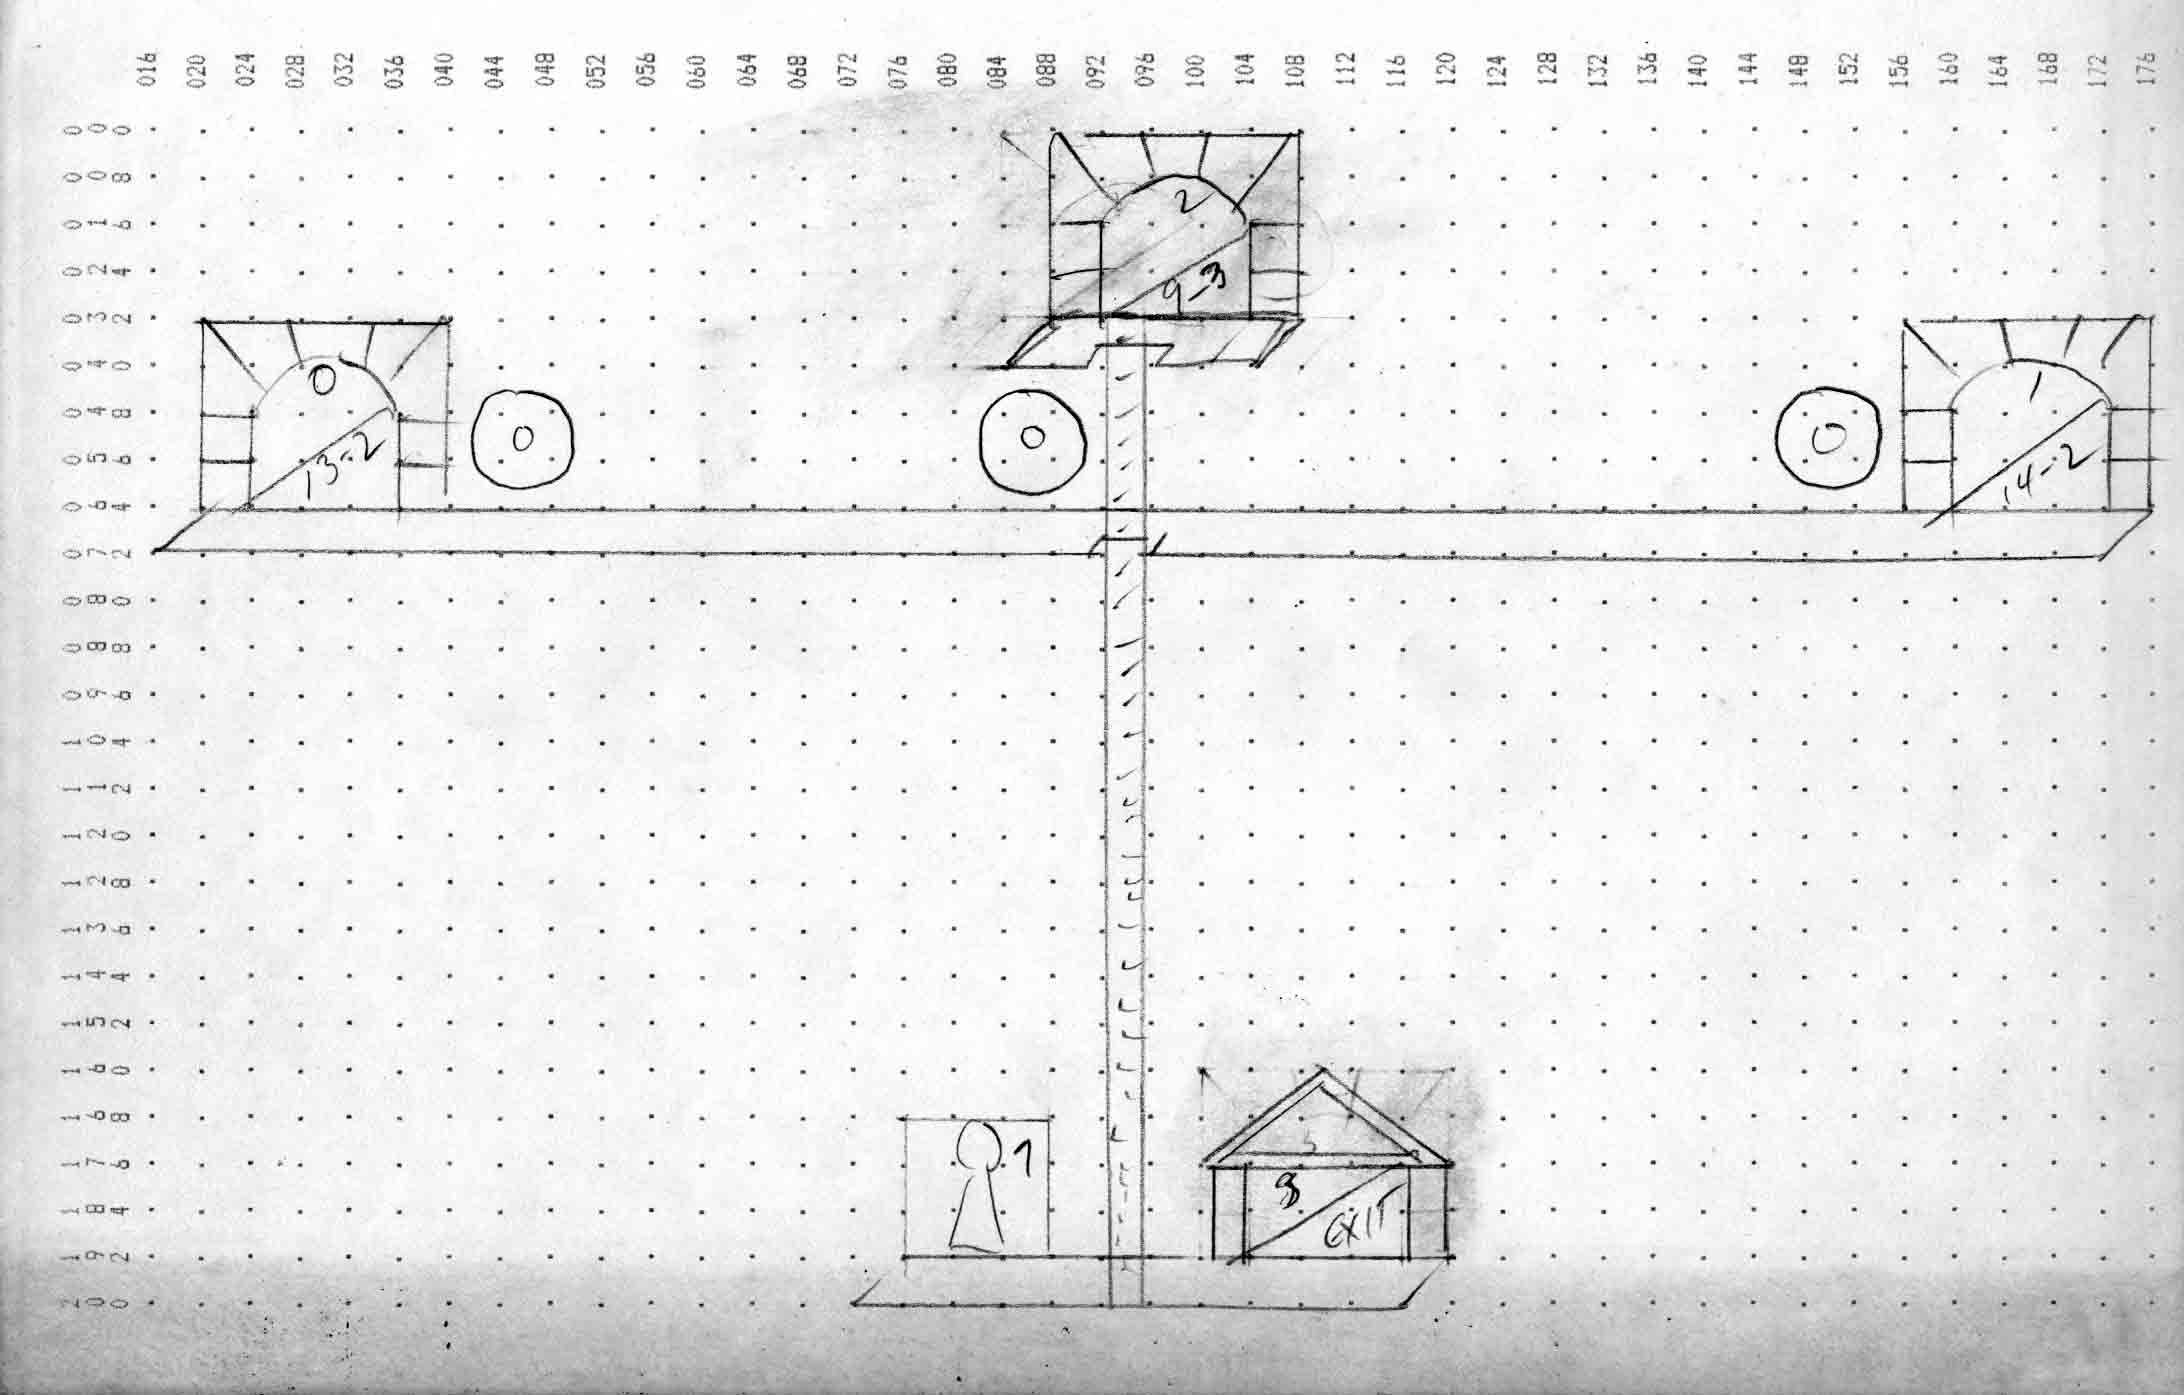 016 020 024 028 032 036 040 044 048 052 056 060 064 068 072 076 080 084 088 092 096 100 104 108 112 116 120 124 128 132 136 140 144 148 152 156 160 164 168 172 176
000
008
016
024
032
040
048
056
064
072
080
088
096
104
112
120
128
136
144
152
160
168
176
184
192
200
2
9-3
0
13-2
0
0
0
1
14-2
1
3
EXIT